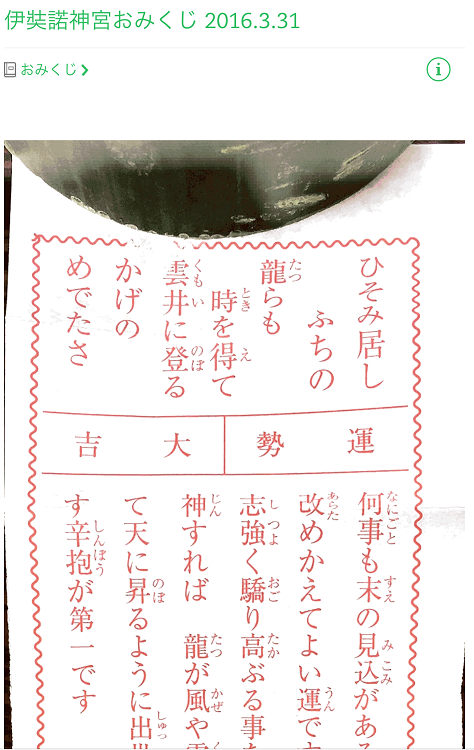 伊弉諾神宮おみくじ 2016.3.31
おみくじ
ひそみ居し
ふちの
龍らも
時を得て
雲井に登る
かげの
めでたさ
運勢
大吉
何事も末の見込がある
改めかえてよい運です
志強く驕り高ぶる事を
神すれば 龍が風や
て天に昇るように出
す辛抱が第一です